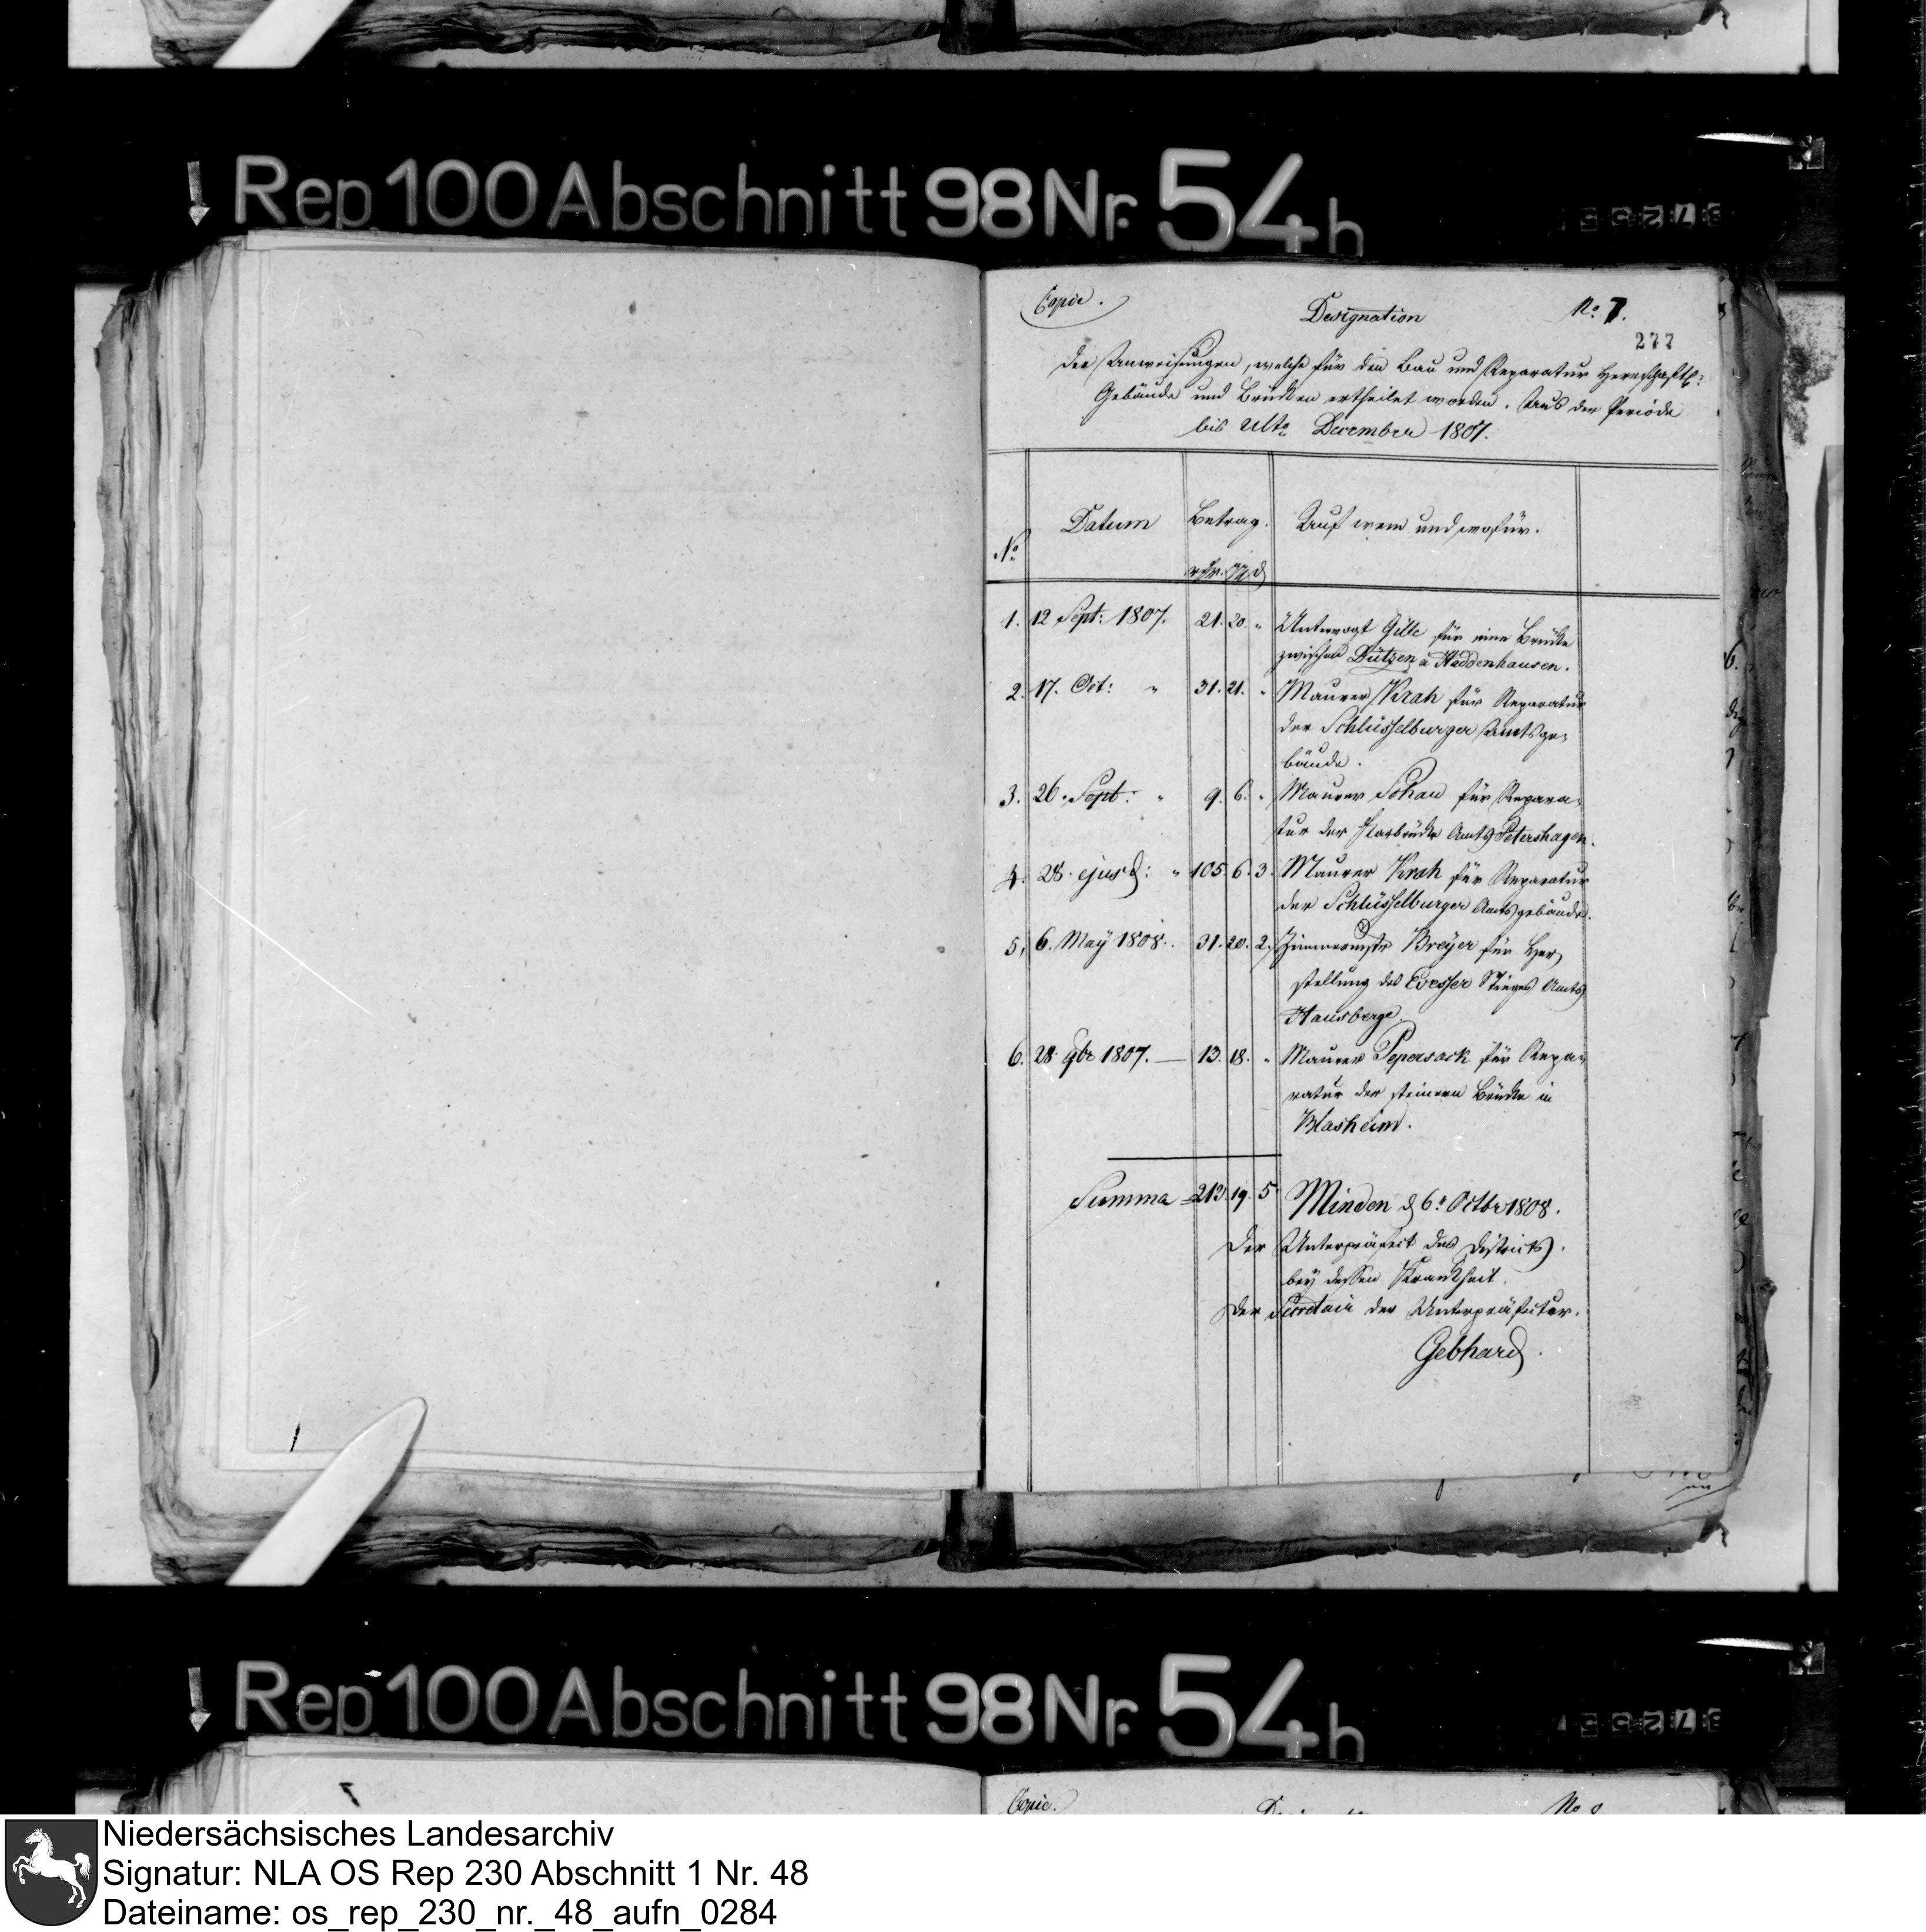 Rep. 100 Abschnitt 98 Nr. 54 h
Copie.
Designation
No. 7.
277
der Anweisungen, welche für den Bau und Reparatur Herrschaftl:
Gebäude und Brücken ertheilet worden. Aus der Periode
bis Ulto December 1807.
No
Datum
Betrag.
Auf wem und wofür.
rthr. ggl. d
1. 12 Sept: 1807. 21. 20. " Untervogt Gille für eine Brücke
zwischen Dützen u Haddenhausen.
2. 17. Oct: " 31. 21. " Maurer Krah für Reparatur
der Schlüsselburger Amtsge-
bäude.
3. 26. Sept: " 9. 6. " Maurer Schau für Repara-
tur der Brücke Amts Petershagen.
4. 28. ejusd: " 105. 6. 3. Maurer Krah für Reparatur
der Schlüsselburger Amtsgebäude.
5, 6. Maÿ 1808. 31. 20. 2. Zimmermstr Breÿer für Her-
stellung des Stieges Amts
Hausberge.
6. 28. 9br 1807. — 13. 18. " Maurer Pepersack für Repa-
ratur der steinern Brücke in
Blasheim.
Summa 213. 19. 5
Minden d 6n Octbr 1808.
Der Unterpräfect des Districts.
beÿ dessen Krankheit.
Der Secretair der Unterpräfectur.
Gebhard.
Rep. 100 Abschnitt 98 Nr. 54 h
Copie.
No
Niedersächsisches Landesarchiv
Signatur: NLA OS Rep 230 Abschnitt 1 Nr. 48
Dateiname: os_rep_230_nr._48_aufn_0284